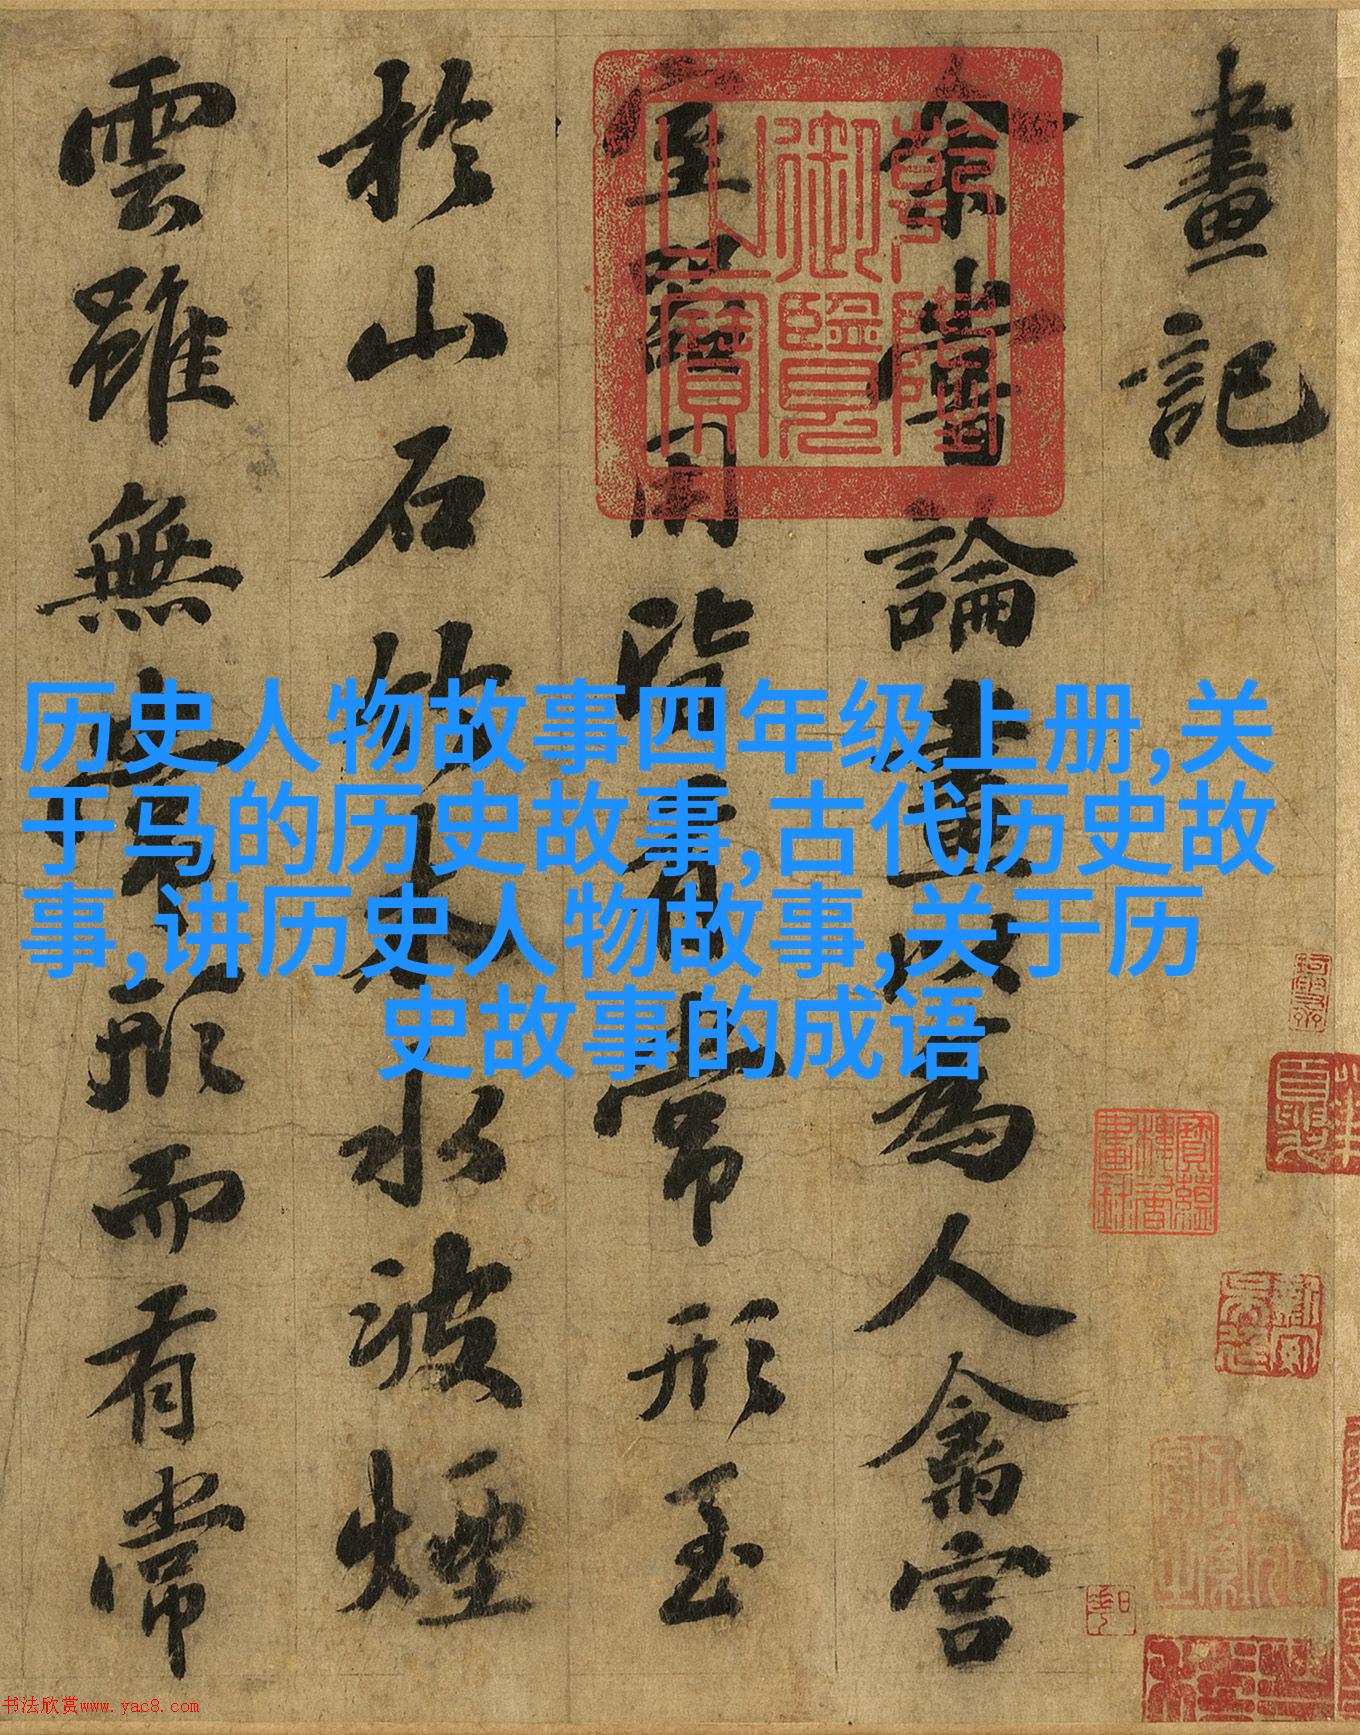 畫記
余嘗論畫以為人禽宮
室器用皆有常形至
於山石竹木水波煙
雲雖無常形而有常
乾隆
御覽
之寶
寶蘊
樓書
畫錄
历史人物故事四年级上册,关
于马的历史故事,古代历史故
事,讲历史人物故事,关于历
史故事的成语
书法欣赏www.yac8.com